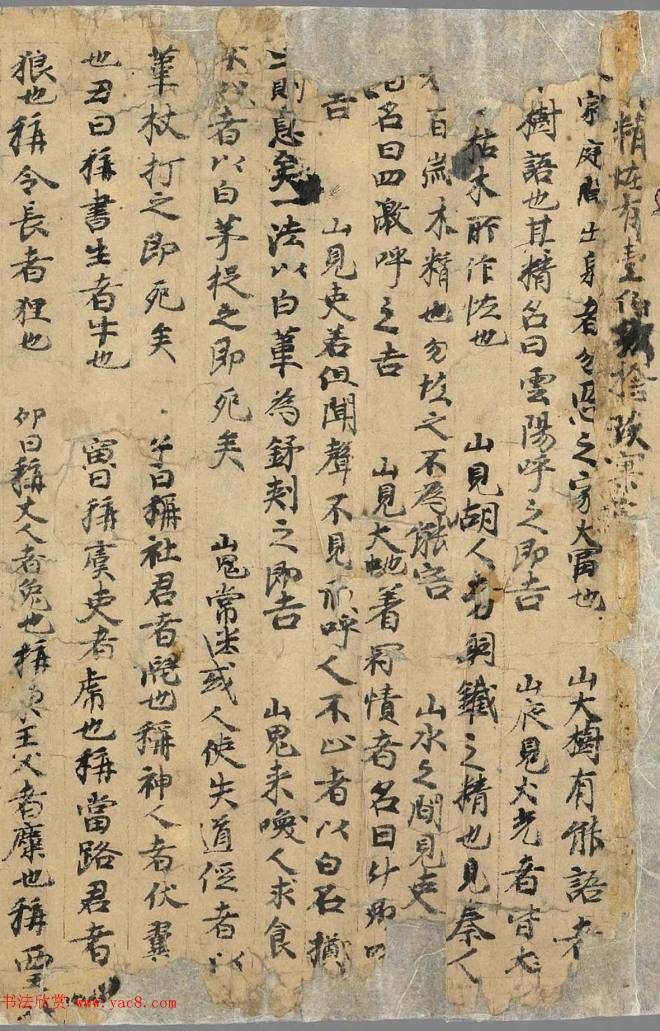 精恠有壹伯
家庭 出身者名 之家大富也 山大樹有能語者
樹語也其精名曰雲陽呼之即吉 山夜見火光者皆
枯木所作恠也 山見胡人者銅鐵之精也見秦人
百歲木精也勿恠之不為能害 山水之間見吏
名曰四激呼之吉 山見大虵著冠幘者名曰升卿
吉 山見吏若但聞聲不見形呼人不止者以白石擲
則息矣一法以白葦為 刺之即吉 山鬼来喚人求食
者以白茅捉之即死矣 山鬼常迷或人使失道俓者以
葦杖打之即死矣 子日稱社君者 也稱神人者伏翼
也丑日稱書生者牛也 寅日稱虞吏者虎也稱當路君者
狼也稱令長者狸也 卯日稱丈人者兔也稱東王父者麋也稱西王
书法欣赏 www.yac8.com